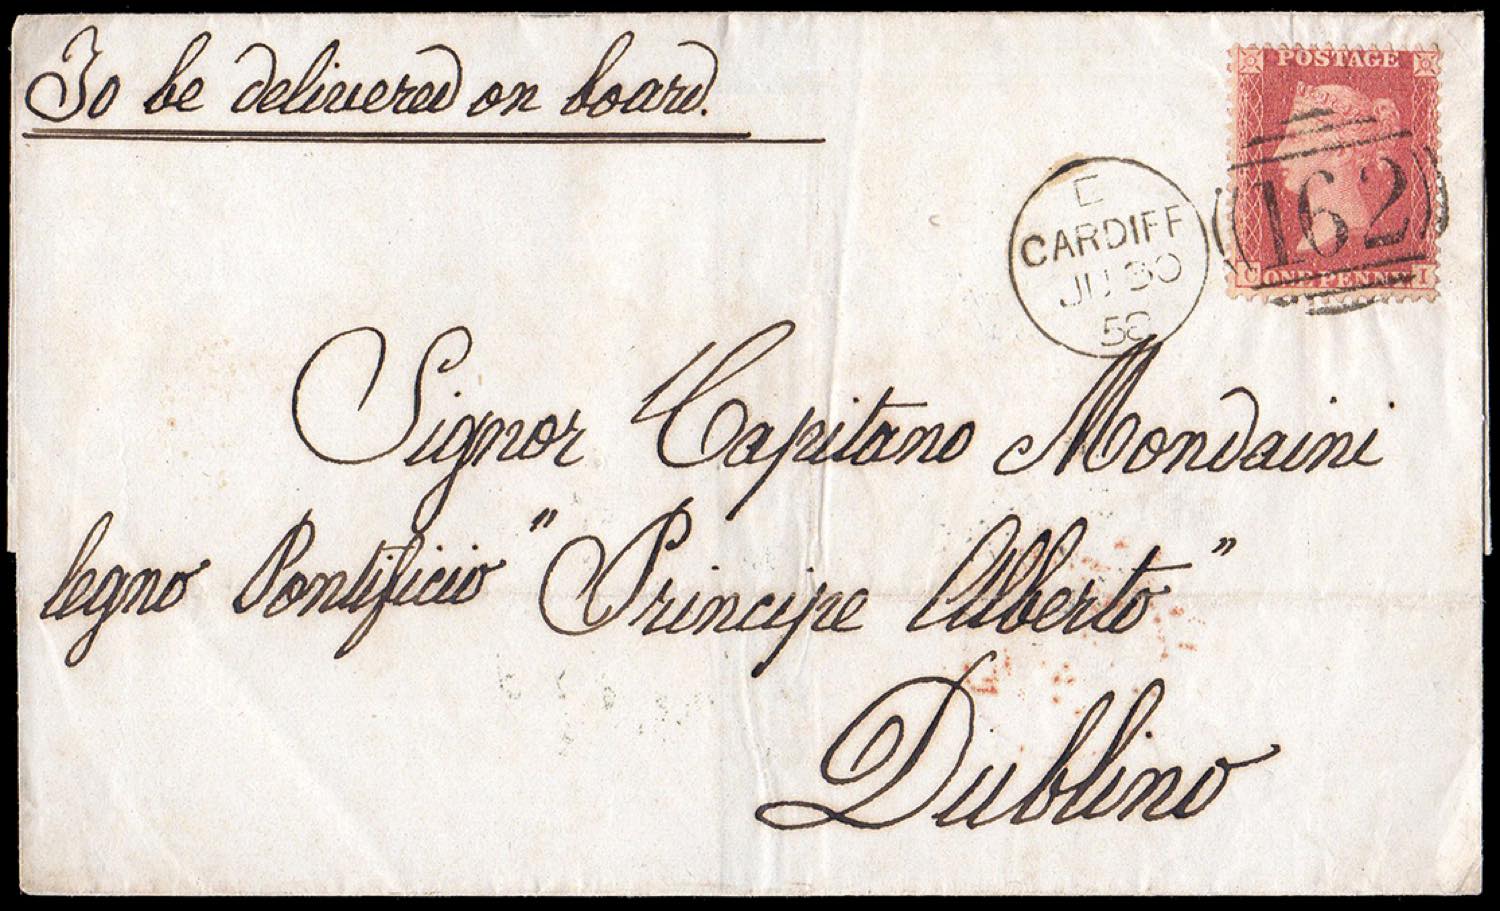 To be delivered on board.
POSTAGE
162
C ONE PENNY I
CARDIFF
JU 30
58
Signor Capitano Mondaini
legno Pontificio "Principe Alberto"
Dublino